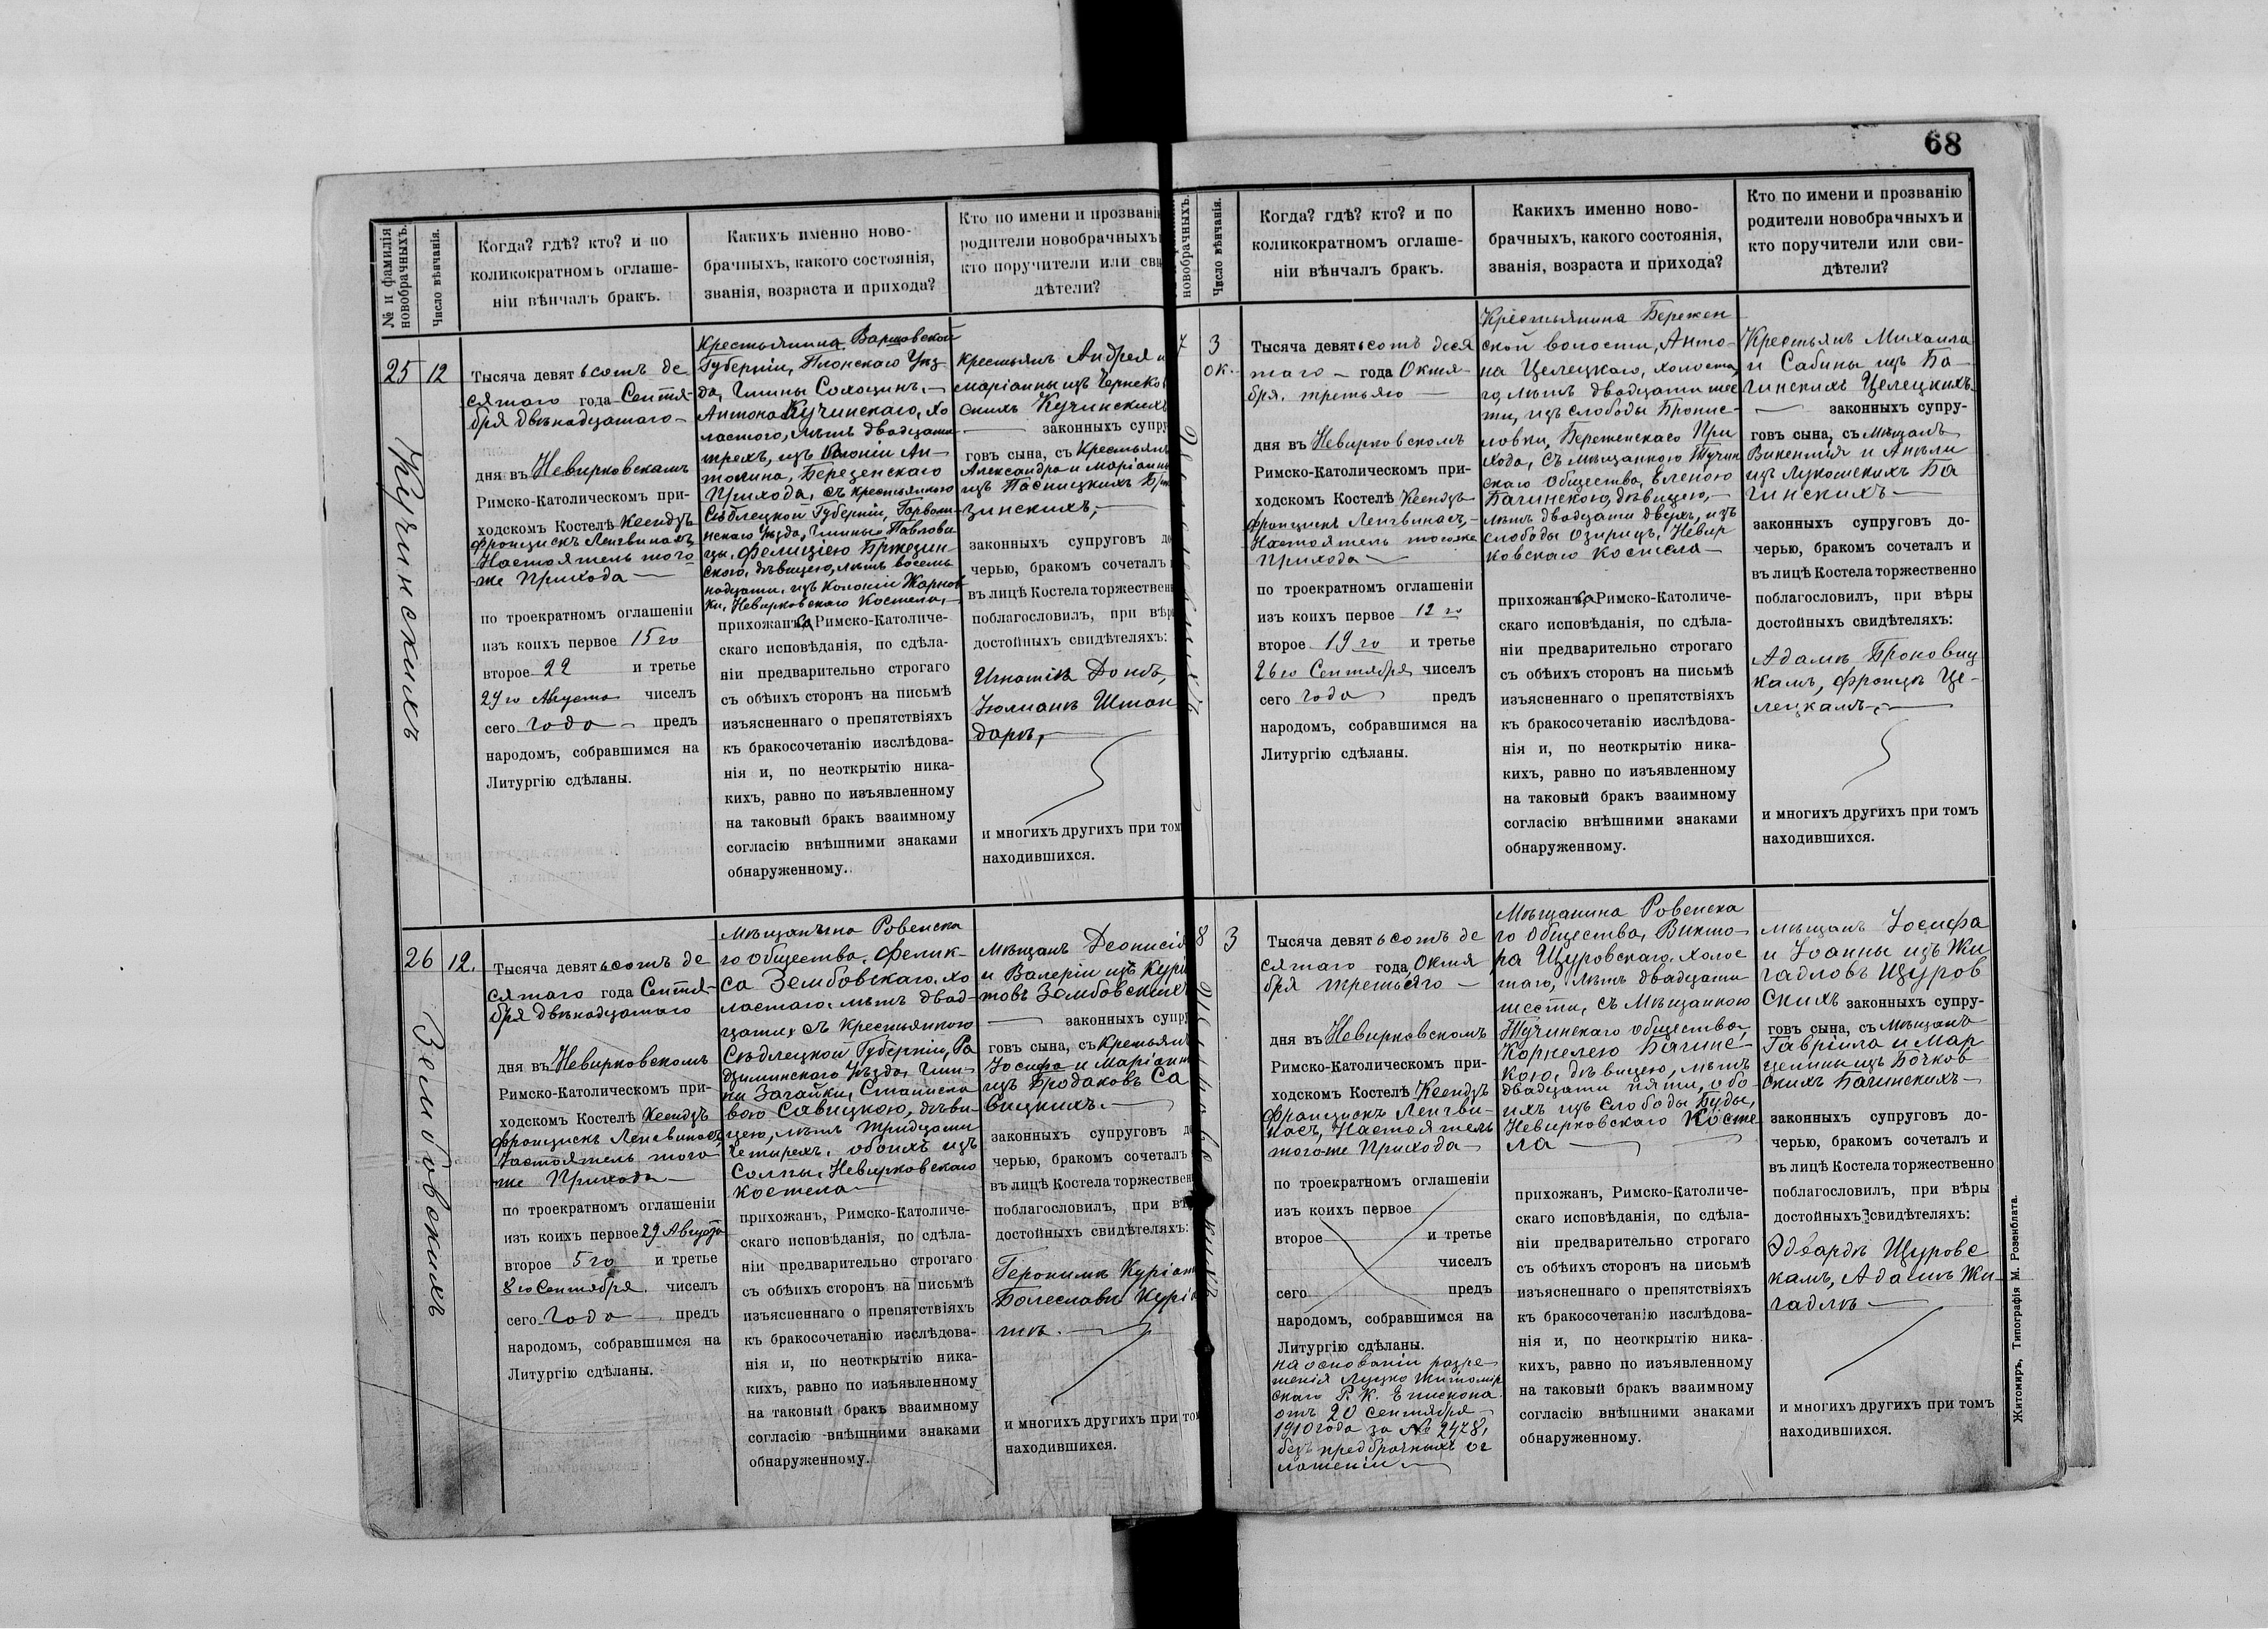 68
№ и фамилія новобрачныхъ.
Число вѣнчанія.
Когда? гдѣ? кто? и по
коликократномъ оглаше-
ніи вѣнчалъ бракъ.
Какихъ именно ново-
брачныхъ, какого состоянія,
званія, возраста и прихода?
Кто по имени и прозвані
родители новобрачныхъ
кто поручители или сви
дѣтели?
25
12
Кучинскихъ
Тысяча девятьсотъ де
сятаго года Сентя-
бря двѣнадцатаго
дня въ Невирковскомъ
Римско-Католическомъ при-
ходскомъ Костелѣ Ксендзъ
Францискъ Ленгвинасъ,
Настоятель того
же Прихода
по троекратномъ оглашеніи
изъ коихъ первое 15го
второе 22 и третье
29го Августа чиселъ
сего года предъ
народомъ, собравшимся на
Литургію сдѣланы.
Крестьянина Варшовской
Губерніи, Плонскаго Уѣз-
да, Гмины Сохоцинъ,
Антона Кучинскаго, хо
лостого, лѣтъ двадцати
трехъ, изъ Колоніи Ан-
толина, Березенскаго
Прихода, съ крестьянкою
Сѣдлецкой Губерніи, Гарволи-
нскаго Уѣзда, Гмины Павлови-
цы, Фелиціею Бржезин-
ского, дѣвицею, лѣтъ восемь
надцати, изъ Колоніи Жарнов
ки, Невирковскаго Костела,
прихожанъ, Римско-Католиче-
скаго исповѣданія, по сдѣла-
ніи предварительно строгаго
съ обѣихъ сторонъ на письмѣ
изъясненнаго о препятствіяхъ
къ бракосочетанію изслѣдова-
нія и, по неоткрытію ника-
кихъ, равно по изъявленному
на таковый бракъ взаимному
согласію внѣшними знаками
обнаруженному.
Крестьянъ Андрея и
Маріанны изъ Чернеко
скихъ Кучинскихъ
законныхъ супру
говъ сына, съ Крестьянъ
Александра и Маріанны
изъ Пасницкихъ Брже
зинскихъ,
законныхъ супруговъ до
черью, бракомъ сочеталъ
въ лицѣ Костела торжествен
поблагословилъ, при вѣр
достойныхъ свидѣтеляхъ:
Игнатія Домъ,
Юліанъ Штан
даръ,
и многихъ другихъ при том
находившихся.
26
12.
Зембовскихъ
Тысяча девятьсотъ де
сятаго года Сентя-
бря двѣнадцатаго
дня въ Невирковскомъ
Римско-Католическомъ при-
ходскомъ Костелѣ Ксендзъ
Францискъ Ленгвинасъ,
Настоятель того
же Прихода
по троекратномъ оглашеніи
изъ коихъ первое 29 Августа
второе 5го и третье
8го Сентября чиселъ
сего года предъ
народомъ, собравшимся на
Литургію сдѣланы.
Мѣщанина Ровенска
го общества, Фелик-
са Зембовскаго, хо
лостаго, лѣтъ двад-
цати, съ Крестьянкою
Сѣдлецкой Губерніи, Ра
дзиминскаго Уѣзда, Гми-
ны Загайки, Станисла
вою Савицкою, дѣви-
цею, лѣтъ тридцати
четырехъ, обоихъ изъ
Солпы, Невирковскаго
Костела
прихожанъ, Римско-Католиче-
скаго исповѣданія, по сдѣла-
ніи предварительно строгаго
съ обѣихъ сторонъ на письмѣ
изъясненнаго о препятствіяхъ
къ бракосочетанію изслѣдова-
нія и, по неоткрытію ника-
кихъ, равно по изъявленному
на таковый бракъ взаимному
согласію внѣшними знаками
обнаруженному.
Мѣщанъ Деонисія
и Валеріи изъ Курія
товъ Зембовскихъ
законныхъ супру
говъ сына, съ Крестьянъ
Іосифа и Маріанны
изъ Бродаковъ Са
вицкихъ.
законныхъ супруговъ до
черью, бракомъ сочеталъ
въ лицѣ Костела торжествен
поблагословилъ, при вѣ
достойныхъ свидѣтеляхъ:
Геронимъ Куріат
Болеславъ Курія
тъ.
и многихъ другихъ при то
находившихся.
новобрачныхъ.
Число вѣнчанія.
Когда? гдѣ? кто? и по
коликократномъ оглаше-
ніи вѣнчалъ бракъ.
Какихъ именно ново-
брачныхъ, какого состоянія,
званія, возраста и прихода?
Кто по имени и прозванію
родители новобрачныхъ и
кто поручители или сви-
дѣтели?
7
3
ок.
Тысяча девятьсотъ деся
таго года Октя-
бря третьяго
дня въ Невирковскомъ
Римско-Католическомъ при-
ходскомъ Костелѣ Ксендзъ
Францискъ Ленгвинасъ,
Настоятель тогоже
Прихода
по троекратномъ оглашеніи
изъ коихъ первое 12го
второе 19го и третье
26го Сентября чиселъ
сего года предъ
народомъ, собравшимся на
Литургію сдѣланы.
Крестьянина Бережен
ской волости, Анто-
на Целецкаго, холоста
го, лѣтъ двадцати шес
ти, изъ слободы Бронис-
ловки, Береженскаго При
хода, съ мѣщанкою Тучин
скаго Общества, Еленою
Багинскою, дѣвицею,
лѣтъ двадцати двухъ, изъ
слободы Озирицъ, Невир
ковскаго Костела
прихожанъ, Римско-Католиче-
скаго исповѣданія, по сдѣла-
ніи предварительно строгаго
съ обѣихъ сторонъ на письмѣ
изъясненнаго о препятствіяхъ
къ бракосочетанію изслѣдова-
нія и, по неоткрытію ника-
кихъ, равно по изъявленному
на таковый бракъ взаимному
согласію внѣшними знаками
обнаруженному.
Крестьянъ Михаила
и Сабины изъ Ба-
гинскихъ Целецкихъ
законныхъ супру-
говъ сына, съ Мѣщанъ
Викентія и Анели
изъ Лукомскихъ Ба
гинскихъ
законныхъ супруговъ до-
черью, бракомъ сочеталъ и
въ лицѣ Костела торжественно
поблагословилъ, при вѣры
достойныхъ свидѣтеляхъ:
Адамъ Броновиц
камъ, Францъ Це-
лецкамъ,
и многихъ другихъ при томъ
находившихся.
8
3
Тысяча девятьсотъ де
сятаго года Октя
бря третьяго
дня въ Невирковскомъ
Римско-Католическомъ при-
ходскомъ Костелѣ Ксендзъ
Францискъ Ленгви-
насъ, Настоятель
тогоже Прихода
по троекратномъ оглашеніи
изъ коихъ первое
второе и третье
чиселъ
сего предъ
народомъ, собравшимся на
Литургію сдѣланы.
на основаніи разре-
шенія Луцко Житомір
скаго Р. К. Епископа
отъ 20 Сентября
1910 года за № 2478,
безъ предбрачныхъ ог
лашеніи
Мѣщанина Ровенска
го Общества, Викто-
ра Щуровскаго, холос
таго, лѣтъ двадцати
шести, съ Мѣщанкою
Тучинскаго общества,
Корнелею Багинс-
кою, дѣвицею, лѣтъ
двадцати пяти, обо
ихъ изъ Слободы Буды,
Невирковскаго Косте
ла
прихожанъ, Римско-Католиче-
скаго исповѣданія, по сдѣла-
ніи предварительно строгаго
съ обѣихъ сторонъ на письмѣ
изъясненнаго о препятствіяхъ
къ бракосочетанію изслѣдова-
нія и, по неоткрытію ника-
кихъ, равно по изъявленному
на таковый бракъ взаимному
согласію внѣшними знаками
обнаруженному.
Мѣщанъ Іосифа
и Іоанны изъ Жи
гадловъ Щуров
скихъ законныхъ супру-
говъ сына, съ Мѣщанъ
Гавріила и Мар
целины изъ Бочков
скихъ Багинскихъ
законныхъ супруговъ до-
черью, бракомъ сочеталъ и
въ лицѣ Костела торжественно
поблагословилъ, при вѣры
достойныхъ свидѣтеляхъ:
Эдвардъ Щуровс
камъ, Адамъ Жи-
гадлъ
и многихъ другихъ при томъ
находившихся.
Житомиръ, Типографія М. Розенблата